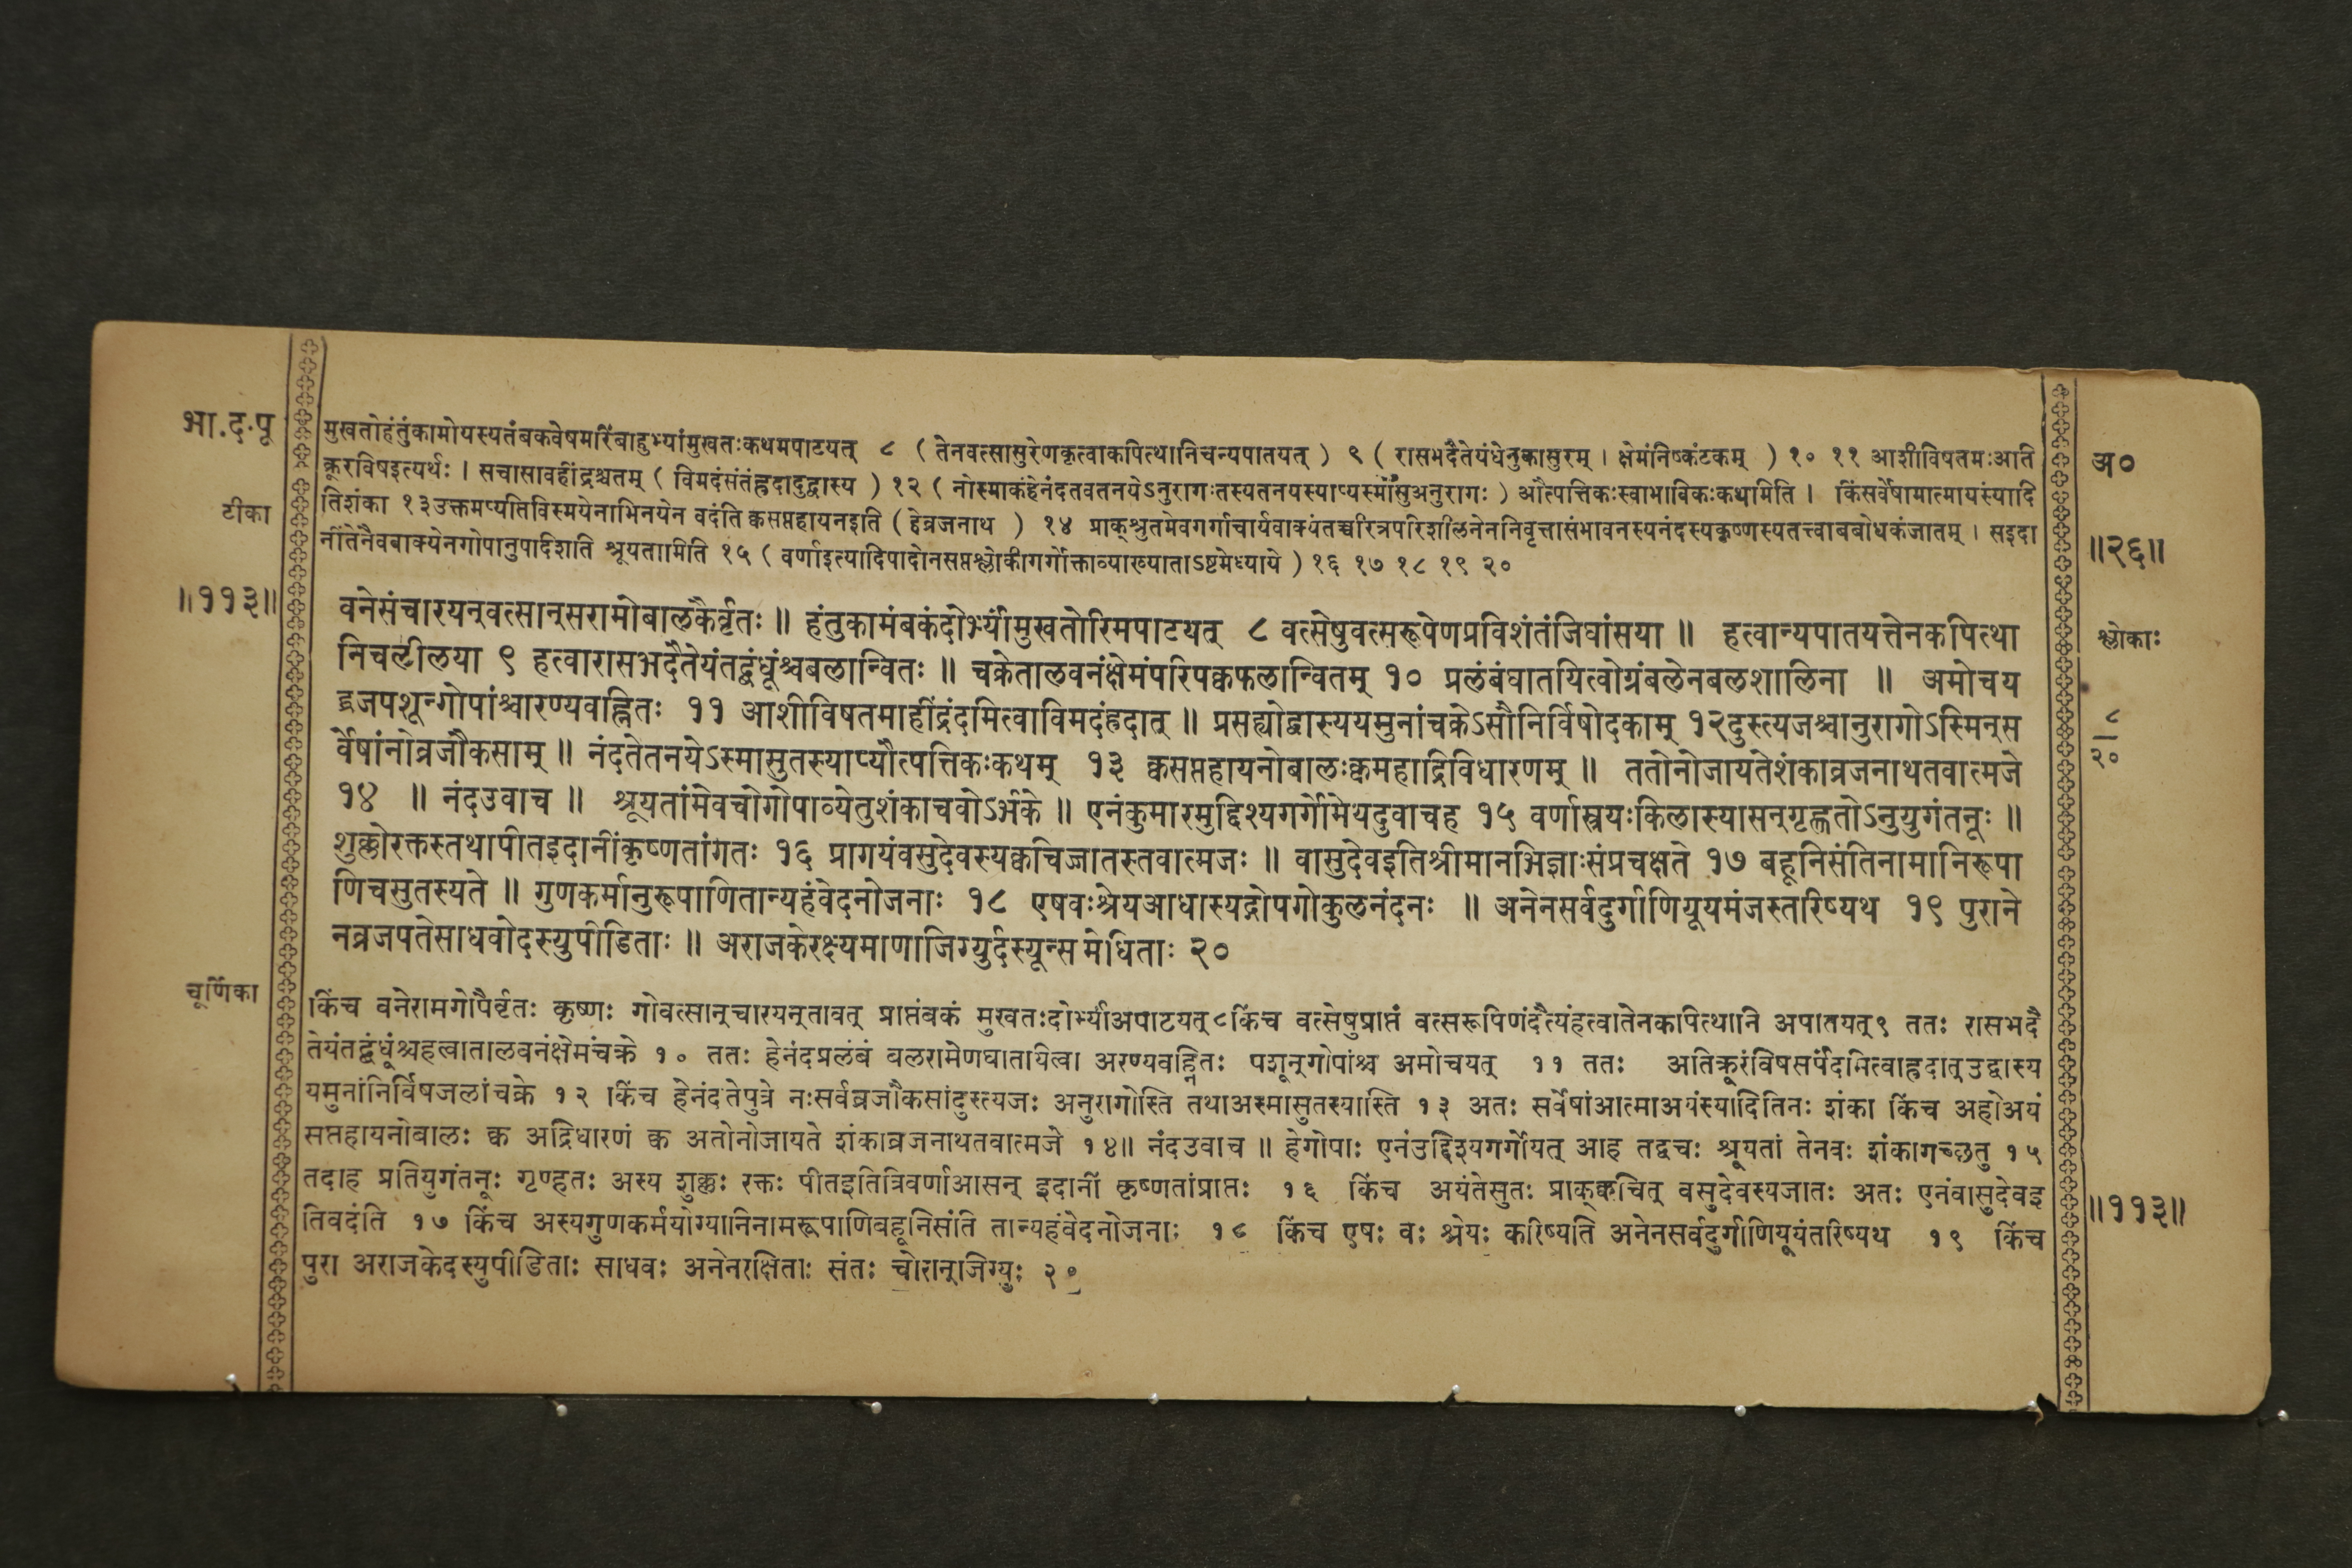 भा.द.पू
मुखतोहंतुंकामोयस्यतंबकवेषमरिंबाहुभ्यांमुखतःकथमपाटयत् ८ ( तेनवत्सासुरेणकृत्वाकपित्थानिचन्यपातयत् ) ९ ( रासभदैतेयंधेनुकासुरम् । क्षेमंनिष्कंटकम् ) १० ११ आशीविषतमःअति
क्रूरविषइत्यर्थः । सचासावहींद्रश्चतम् ( विमदंसंतंह्रदादुद्वास्य ) १२ ( नोस्माकंहेनंदतवतनयेऽनुरागःतस्यतनयस्याप्यस्माँसुअनुरागः ) औत्पत्तिकःस्वाभाविकःकथामिति । किंसर्वेषामात्मायंस्यादि
टीका
तिशंका १३उक्तमप्यतिविस्मयेनाभिनयेन वदंति क्कसप्तहायनइति ( हेव्रजनाथ ) १४ प्राक्श्रुतमेवगर्गाचार्यवाक्यंतच्चरित्रपरिशीलनेननिवृत्तासंभावनस्यनंदस्यकृष्णस्यतत्त्वाबबोधकंजातम् । सइदा
नींतेनैवबाक्येनगोपानुपादिशति श्रूयतामिति १५ ( वर्णाइत्यादिपादोनसप्तश्लोकीगर्गोक्ताव्याख्याताऽष्टमेध्याये ) १६ १७ १८ १९ २०
अ०
॥२६॥
॥११३॥
वनेसंचारयन्वत्सान्सरामोबालकैर्वृतः ॥ हंतुकामंबकंदोर्भ्यांमुखतोरिमपाटयत् ८ वत्सेषुवत्सरूपेणप्रविशंतंजिघांसया ॥ हत्वान्यपातयत्तेनकपित्था
निचलीलया ९ हत्वारासभदैतेयंतद्बंधूंश्चबलान्वितः ॥ चक्रेतालवनंक्षेमंपरिपक्वफलान्वितम् १० प्रलंबंघातयित्वोग्रंबलेनबलशालिना ॥ अमोचय
द्व्रजपशून्गोपांश्चारण्यवह्नितः ११ आशीविषतमाहींद्रंदमित्वाविमदंह्रदात् ॥ प्रसह्योद्वास्ययमुनांचक्रेऽसौनिर्विषोदकाम् १२दुस्त्यजश्चानुरागोऽस्मिन्स
र्वेषांनोव्रजौकसाम् ॥ नंदतेतनयेऽस्मासुतस्याप्यौत्पत्तिकःकथम् १३ क्वसप्तहायनोबालःक्वमहाद्रिविधारणम् ॥ ततोनोजायतेशंकाव्रजनाथतवात्मजे
१४ ॥ नंदउवाच ॥ श्रूयतांमेवचोगोपाव्येतुशंकाचवोऽर्भके ॥ एनंकुमारमुद्दिश्यगर्गोमेयदुवाचह १५ वर्णास्त्रयःकिलास्यासन्गृह्णतोऽनुयुगंतनूः ॥
शुक्लोरक्तस्तथापीतइदानींकृष्णतांगतः १६ प्रागयंवसुदेवस्यक्वचिज्जातस्तवात्मजः ॥ वासुदेवइतिश्रीमानभिज्ञाःसंप्रचक्षते १७ बहूनिसंतिनामानिरूपा
णिचसुतस्यते ॥ गुणकर्मानुरूपाणितान्यहंवेदनोजनाः १८ एषवःश्रेयआधास्यद्गोपगोकुलनंदनः ॥ अनेनसर्वदुर्गाणियूयमंजस्तरिष्यथ १९ पुराने
नव्रजपतेसाधवोदस्युपीडिताः ॥ अराजकेरक्ष्यमाणाजिग्युर्दस्यून्समेधिताः २०
श्लोकाः
८
२०
चूर्णिका
किंच वनेरामगोपैर्वृतः कृष्णः गोवत्सान्चारयन्तावत् प्राप्तंबकं मुखतःदोर्भ्यांअपाटयत्८किंच वत्सेषुप्राप्तं वत्सरूपिणंदैत्यंहत्वातेनकपित्थानि अपातयत्९ ततः रासभदै
तेयंतद्बंधूंश्चहत्वातालवनंक्षेमंचक्रे १० ततः हेनंदप्रलंबं बलरामेणघातायित्वा अरण्यवह्नितः पशून्गोपांश्च अमोचयत् ११ ततः अतिक्रूरंविषसर्पंदमित्वाह्रदात्उद्वास्य
यमुनांनिर्विषजलांचक्रे १२ किंच हेनंदतेपुत्रे नःसर्वव्रजौकसांदुस्त्यजः अनुरागोस्ति तथाअस्मासुतस्यास्ति १३ अतः सर्वेषांआत्माअयंस्यादितिनः शंका किंच अहोअयं
सप्तहायनोबालः क्व अद्रिधारणं क्व अतोनोजायते शंकाव्रजनाथतवात्मजे १४॥ नंदउवाच ॥ हेगोपाः एनंउद्दिश्यगर्गोयत् आह तद्वचः श्रूयतां तेनवः शंकागच्छतु १५
तदाह प्रतियुगंतनूः गृण्हतः अस्य शुक्लः रक्तः पीतइतित्रिवर्णाआसन् इदानीं कृष्णतांप्राप्तः १६ किंच अयंतेसुतः प्राक्क्वचित् वसुदेवस्यजातः अतः एनंवासुदेवइ
तिवदंति १७ किंच अस्यगुणकर्मयोग्यानिनामरूपाणिबहूनिसंति तान्यहंवेदनोजनाः १८ किंच एषः वः श्रेयः करिष्यति अनेनसर्वदुर्गाणियूयंतरिष्यथ १९ किंच
पुरा अराजकेदस्युपीडिताः साधवः अनेनरक्षिताः संतः चोरान्जिग्युः २०
॥११३॥